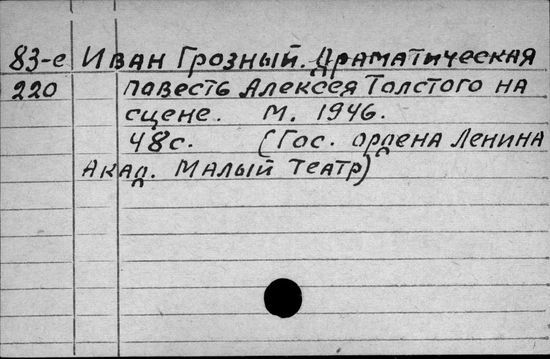 83-е Иван Грозный. Драматическая
220 повесть Алексея Толстого на
сцене. М. 1946.
48с. (Гос. ордена Ленина
Акад. Малый театр)